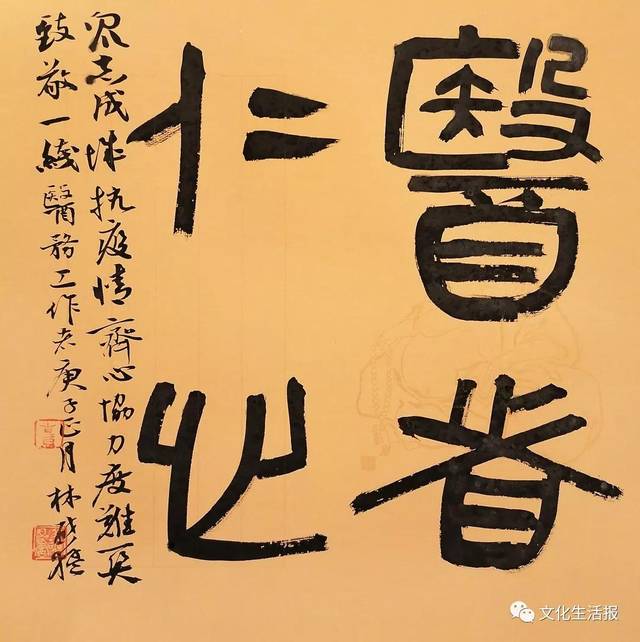 醫者
仁心
众志成城抗疫情齊心協力度難关
致敬一綫醫務工作者庚子正月林
文化生活报